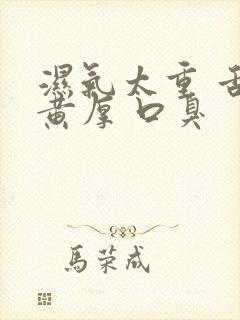 濕氣太重 舌
黄厚口臭
馬荣成